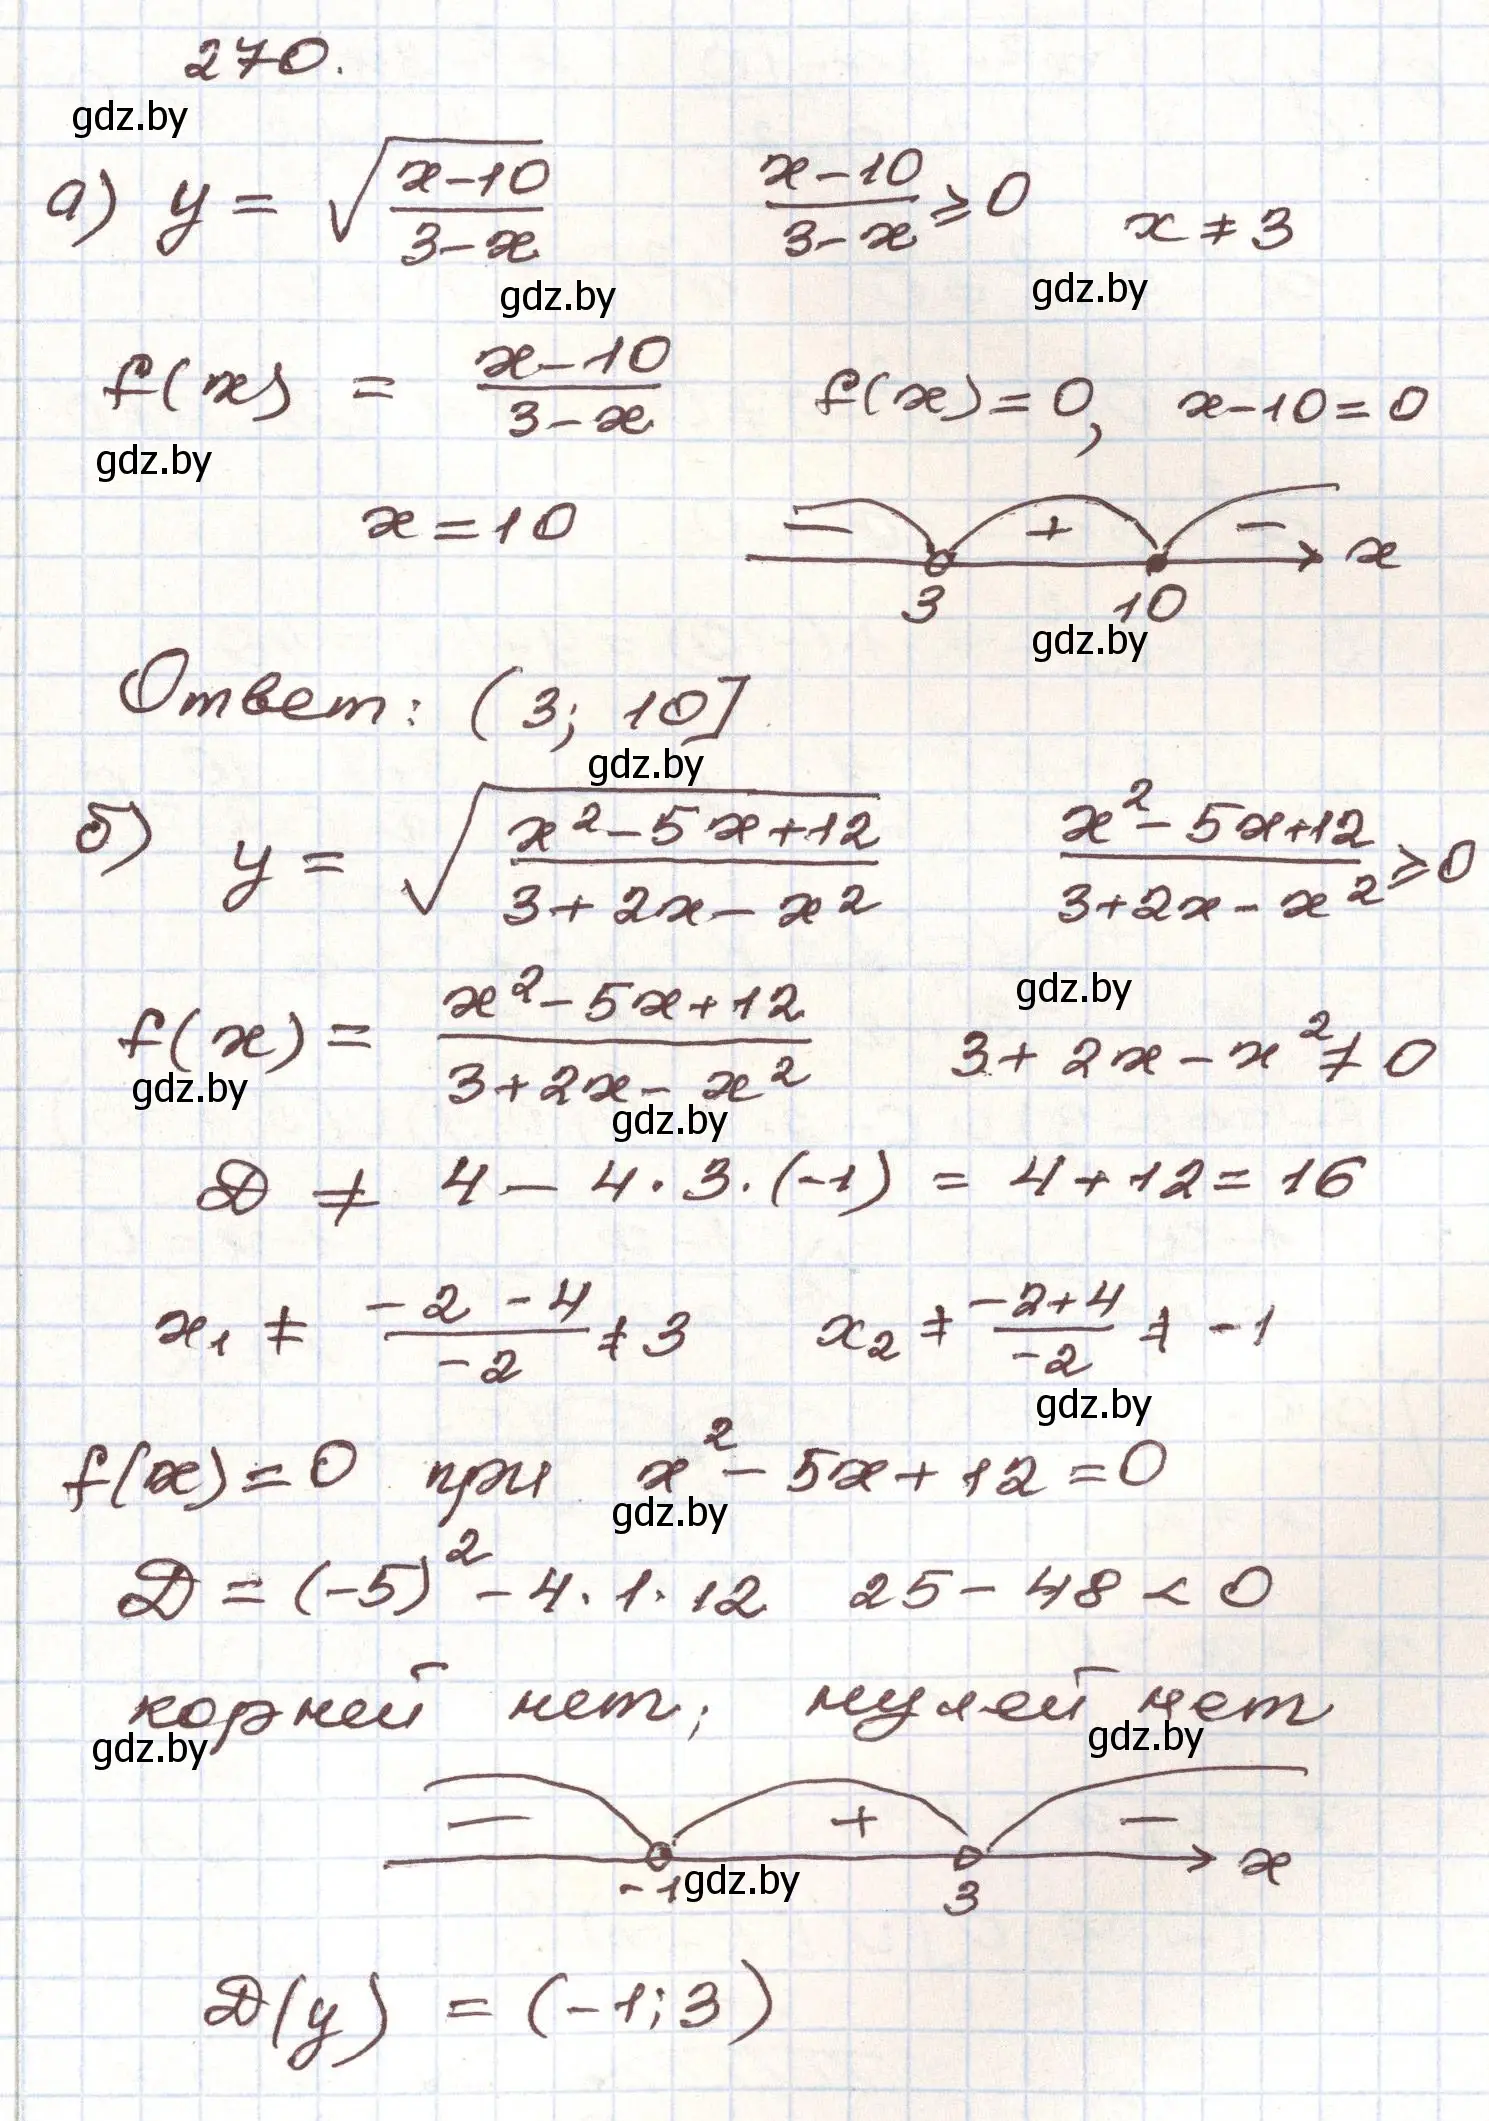 270.
gdz.by
а) y = √((x-10)/(3-x))    (x-10)/(3-x) ⩾ 0    x ≠ 3
gdz.by gdz.by
f(x) = (x-10)/(3-x)    f(x) = 0, x-10 = 0
gdz.by
x = 10    − + − x
3 10
gdz.by
Ответ: (3; 10]
gdz.by
б) y = √((x²-5x+12)/(3+2x-x²))    (x²-5x+12)/(3+2x-x²) ⩾ 0
gdz.by
f(x) = (x²-5x+12)/(3+2x-x²)    3+2x-x² ≠ 0
gdz.by gdz.by
D ≠ 4 - 4·3·(-1) = 4+12 = 16
x₁ ≠ (-2-4)/(-2) ≠ 3    x₂ ≠ (-2+4)/(-2) ≠ -1
gdz.by
f(x) = 0 при x²-5x+12 = 0
gdz.by
D = (-5)² - 4·1·12    25-48 < 0
корней нет; нулей нет
gdz.by gdz.by
− + − x
-1 gdz.by 3
D(y) = (-1; 3)